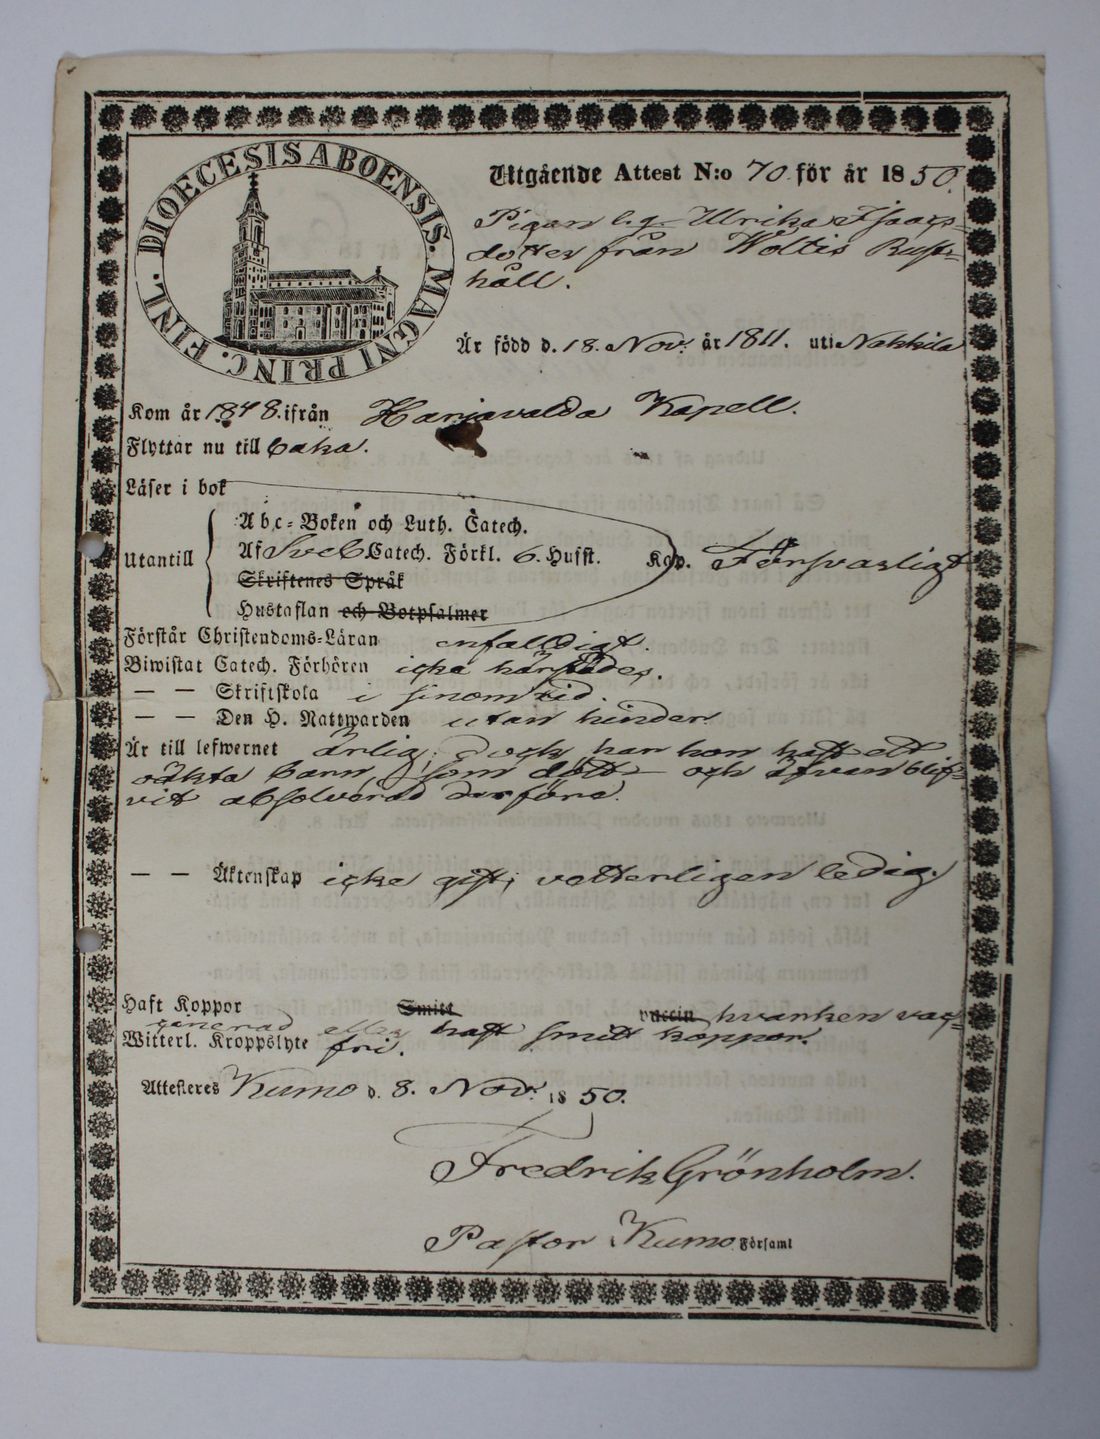 DIOECESIS ABOENSIS. MAGNI PRINC. FINL.
Utgående Attest N:o 70 för år 1850.
Pigan Ulrika Isaaks-
dotter från Woltis Rust-
håll.
Är född d. 18. Nov. år 1811. uti Nakkila
Kom år 1848. ifrån Harjavalda Kapell.
Flyttar nu till
Läser i bok
Utantill
Abc-Boken och Luth. Catech.
Af Sveb Catech. Förkl. 6. Hufst. Kap. Försvarligt
Skriftenes Språk
Hustaflan och Botpsalmer
Förstår Christendoms-Läran enfaldigt.
Biwistat Catech. Förhören icke härstädes.
— — Skriftskola i sinom tid.
— — Den H. Nattwarden utan hinder.
Är till lefwernet ärlig, dock har hon haft ett
oäkta barn, som dött — och äfven blif-
vit absolverad derföre.
— — Äktenskap icke gift; vetterligen ledig.
Haft Koppor Smitt vaccin hvarken vac-
cinerad eller haft smitt koppor.
Witterl. Kroppslyte fri.
Attesteres Kumo d. 8. Nov. 1850.
Fredrik Grönholm.
Pastor i Kumo Församl